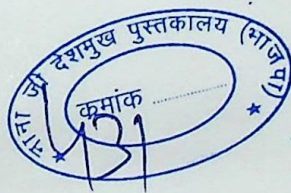 नाना जी देशमुख पुस्तकालय (भाजपा)
क्रमांक ..............
431